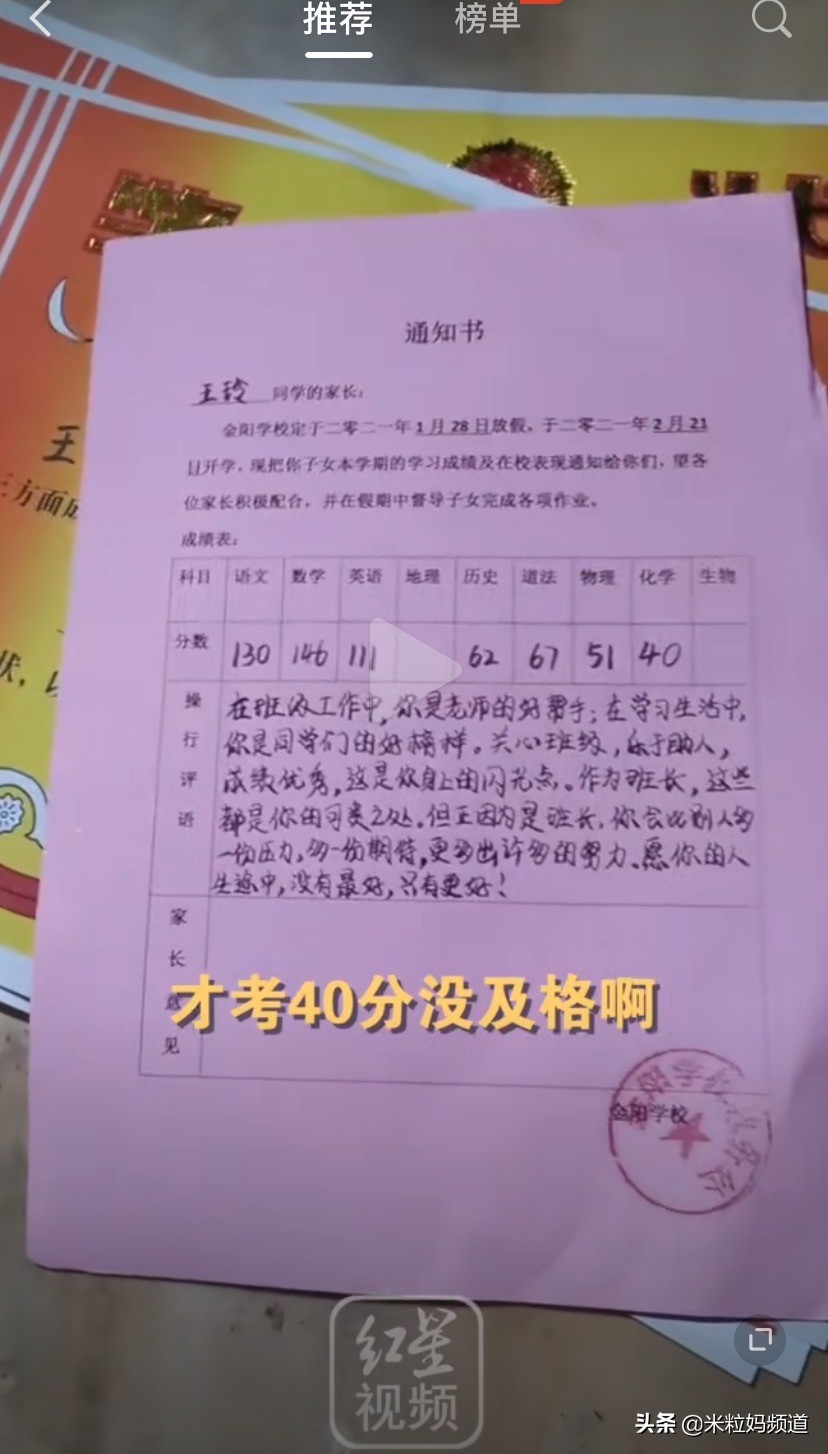 推荐 榜单
奖
王
三方面成
状,
通知书
王玲 同学的家长:
金阳学校定于二零二一年1月28日放假,于二零二一年2月21
日开学,现把你子女本学期的学习成绩及在校表现通知给你们,望各
位家长积极配合,并在假期中督导子女完成各项作业。
成绩表:
科目 语文 数学 英语 地理 历史 道法 物理 化学 生物
分数 130 146 111 62 67 51 40
操行评语
在班级工作中,你是老师的好帮手;在学习生活中,
你是同学们的好榜样。关心班级,乐于助人,
成绩优秀,这是你身上的闪光点。作为班长,这些
都是你的可贵之处。但正因为是班长,你会比别人多
一份压力,多一份期待,更多出许多的努力、愿你的人
生途中,没有最好,只有更好!
家长意见
才考40分没及格啊
金阳学校
红星
视频
头条 @米粒妈频道